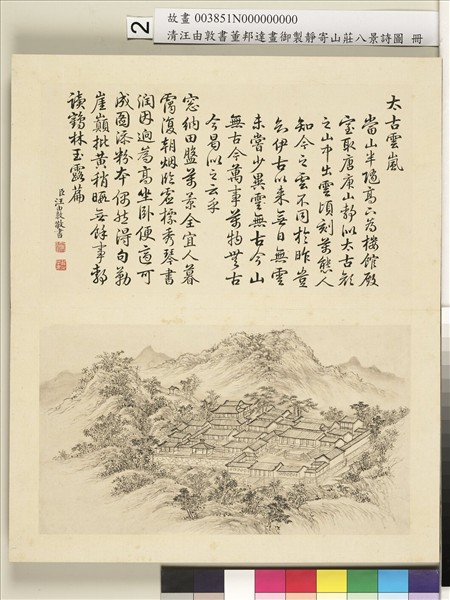 2
故畫 003851N000000000
清汪由敦書董邦達畫御製靜寄山莊八景詩圖 冊
太古雲嵐
當山半隨高下為樓館殿
室取唐庚山靜似太古顏
之山中出雲頃刻萬態人
知今之雲不同於昨豈
知伊古以來無日無雲
未嘗少異雲無古今山
無古今萬事萬物無古
今易似之云乎
窓納田盤萬景全宜人暮
靄復朝烟臨虛檬秀琴書
潤因迥為高坐卧便適可
成圖添粉本偶然得句勒
崖巔批黃稍暇無餘事靜
讀鶴林玉露篇
臣汪由敦敬書